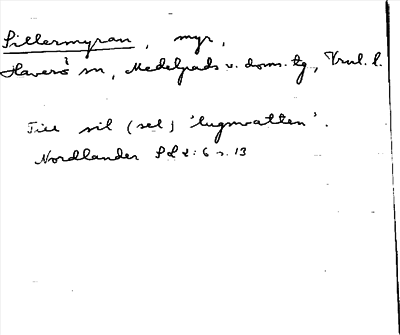 Sillermyran, myr,
Haverö sn, Medelpads v. doms. tg, Vnl. l.
Till sil (sel) 'lugnvatten'.
Nordlander S L 2:6 s. 13